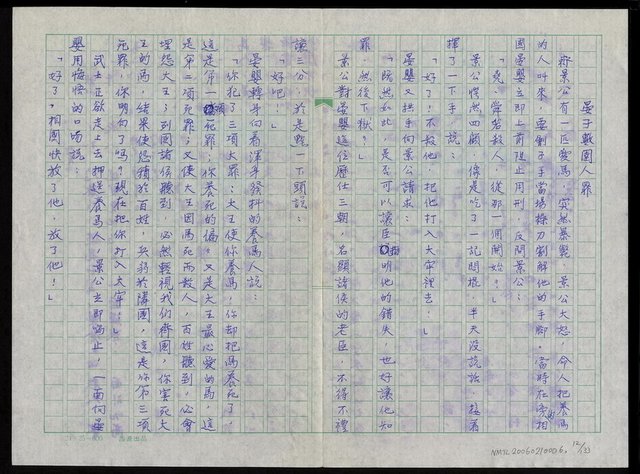 晏子數圉人罪
齊景公有一匹愛馬，突然暴斃，景公大怒，命人把養馬
的人叫來，要劊子手當場操刀割解他的手腳。當時在旁相
國晏嬰立即上前阻止用刑，反問景公：
「堯、舜若殺人，從那一個開始？」
景公愕然四顧，像是吃了一記悶棍，半天沒說話，接著
揮了一下手，說：
「好了！不殺他，把他打入大牢裡去。」
晏嬰又拱手向景公請求：
「既然如此，是否可以讓臣指明他的錯失，也好讓他知
罪，然後下獄？」
景公對晏嬰這位歷仕三朝，名顯諸侯的老臣，不得不禮
讓三分，於是點一下頭說：
「好吧！」
晏嬰轉身向著渾身發抖的養馬人說：
「你犯了三項大罪：大王使你養馬，你卻把馬養死了，
這是第一項死罪；你養死的偏又是大王最心愛的馬，這
是第二項死罪；又使大王因馬死而殺人，百姓聽到，必會
埋怨大王；列國諸侯聽到，必然輕視我們齊國，你害死大
王的馬，結果使怨積於百姓，兵弱於隣國，這是你第三項
死罪，你明白了嗎？現在把你打入大牢。」
武士正欲走上去押送養馬人，景公立即喝止，一面向晏
嬰用悔悟的口吻說：
「好了，相國快放了他，放了他！」
25×24=600
NMTL20060210006, 12/133